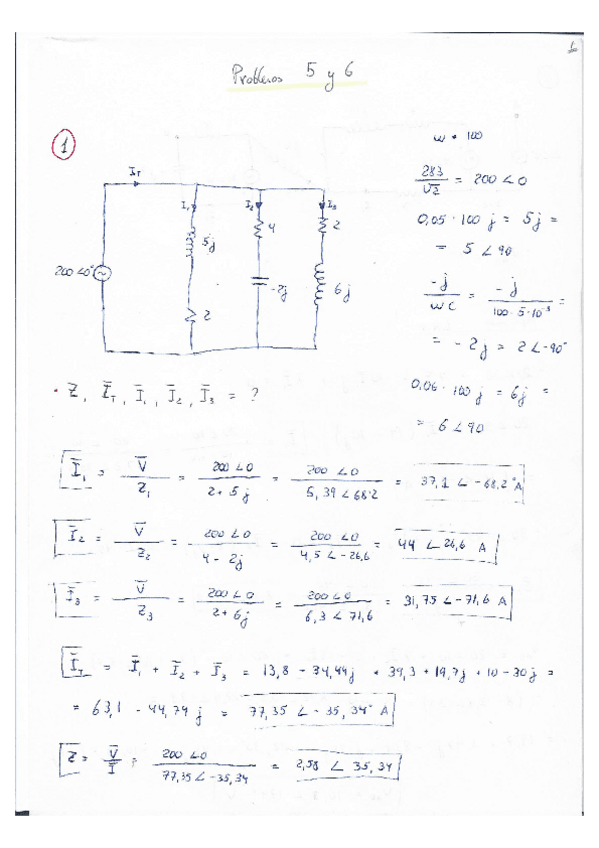 1
Problemas 5 y 6
1
I_T
I_1
I_2
I_3
5j
4
2
200∠0°
-2j
6j
2
ω = 100
283/√2 = 200∠0
0,05 · 100 j = 5j =
= 5∠90
-j/ωC = -j/(100·5·10⁻³) =
= -2j = 2∠-90°
0,06 · 100 j = 6j =
= 6∠90
· Z̄, Ī_T, Ī_1, Ī_2, Ī_3 = ?
Ī_1 = V̄/Z_1 = 200∠0/(2+5j) = 200∠0/(5,39∠68,2) = 37,1∠-68,2° A
Ī_2 = V̄/Z_2 = 200∠0/(4-2j) = 200∠0/(4,5∠-26,6) = 44∠26,6 A
Ī_3 = V̄/Z_3 = 200∠0/(2+6j) = 200∠0/(6,3∠71,6) = 31,75∠-71,6 A
Ī_T = Ī_1 + Ī_2 + Ī_3 = 13,8 - 34,44j + 39,3 + 19,7j + 10 - 30j =
= 63,1 - 44,74j = 77,35∠-35,34° A
Z̄ = V̄/Ī = 200∠0/(77,35∠-35,34) = 2,58∠35,34